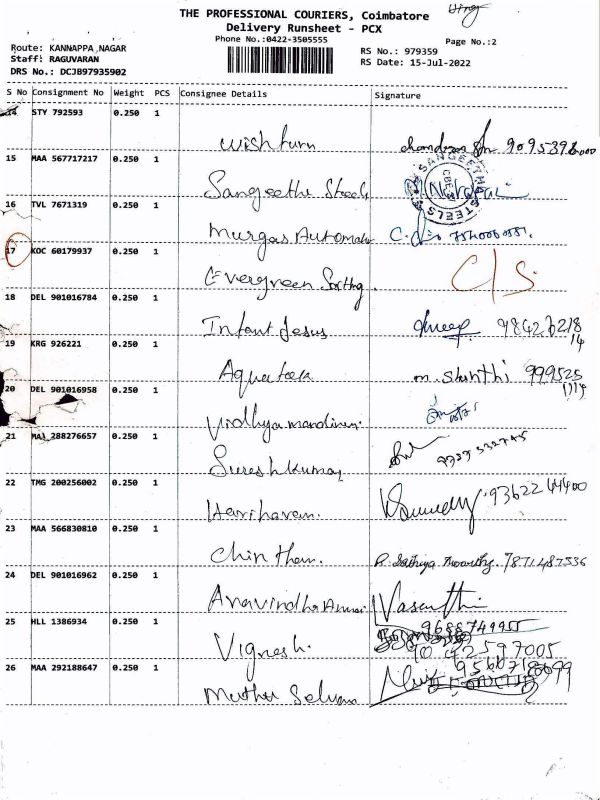 THE PROFESSIONAL COURIERS, Coimbatore
Delivery Runsheet - PCX
Phone No.:0422-3505555
Page No.:2
Route: KANNAPPA NAGAR
Staff: RAGUVARAN
DRS No.: DCJB97935902
RS No.: 979359
RS Date: 15-Jul-2022
S No Consignment No Weight PCS Consignee Details Signature
14 STY 792593 0.250 1
Wishturn 9095398000
15 MAA 567717217 0.250 1
Sangeetha Steels
SANGEETHA STEELS CBE
16 TVL 7671319 0.250 1
Murgas Automate
17 KOC 60179937 0.250 1
Evergreen C/S.
18 DEL 901016784 0.250 1
Infant Jesus 98426218
14
19 KRG 926221 0.250 1
Aquateek m. Shanthi 999525
20 DEL 901016958 0.250 1
Vidhyamandiram.
21 MAA 288276657 0.250 1
Sureshkumar
22 TMG 200256002 0.250 1
Hariharan. 9362244400
23 MAA 566830810 0.250 1
Chinthan. R. Sathiya Moorthy. 7871487536
24 DEL 901016962 0.250 1
Aravindha Ammai Vasanthi
25 HLL 1386934 0.250 1
9688749955
Vignesh. 9042597005
26 MAA 292188647 0.250 1
Muthu Selvam